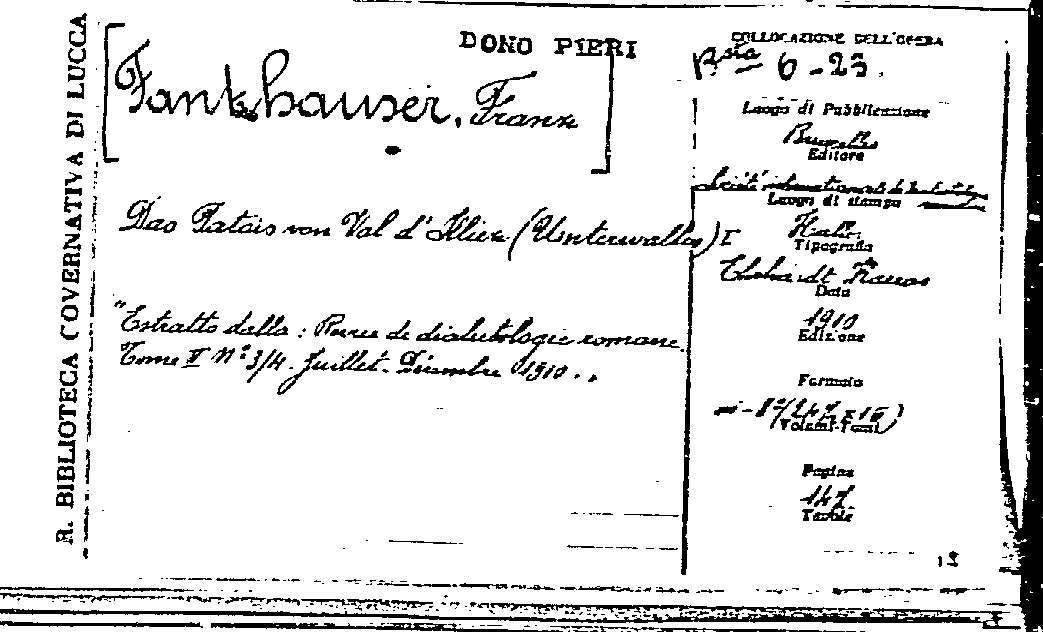 R. BIBLIOTECA GOVERNATIVA DI LUCCA
DONO PIERI
[Fankhauser, Franz]
Das Patois von Val d'Illiez (Unterwallis) I
"Estratto dalla: Revue de dialectologie romane.
Tome II N° 3/4. Juillet-Décembre 1910."
COLLOCAZIONE DELL'OPERA
Bsta 6-23.
Luogo di Pubblicazione
Bruxelles
Editore
Société internationale de
Luogo di stampa
Halle
Tipografia
Ehrhardt Karras
Data
1910
Edizione
Formato
in-8°
Volumi-Tomi
Pagine
147
Tavole